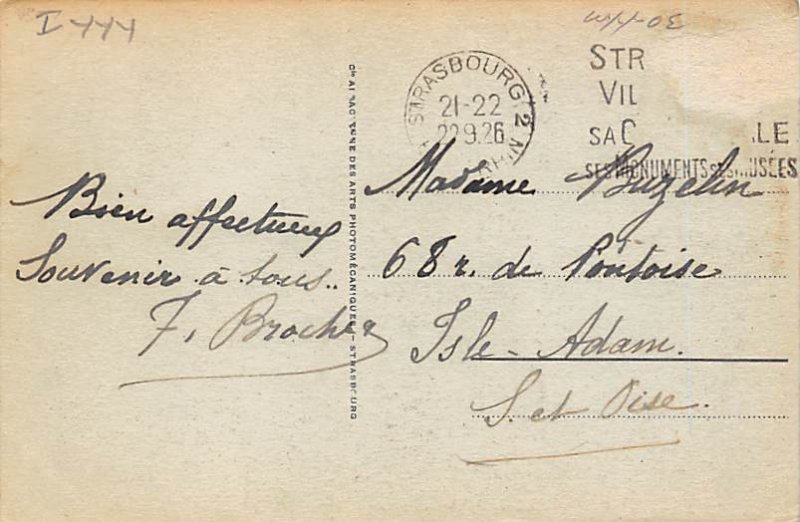 I 444
STRASBOURG 2
21-22
22.9.26
STR
VIL
SA C LE
SES MONUMENTS SES MUSÉES
Bien affectueux
Souvenir à tous..
F. Brocher
DES ARTS PHOTOMÉCANIQUES - STRASBOURG
Madame Buzelin
68 r. de Pontoise
Isle-Adam.
S. et Oise.